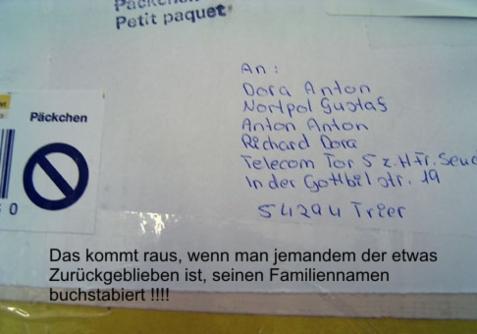 Päckchen
Petit paquet
An:
Dora Anton
Nortpol Gustaf
Anton Anton
Richard Dora
Telecom Tor 5 z.H.Fr.
In der Gottbil str. 19
54294 Trier
Päckchen
0
Das kommt raus, wenn man jemandem der etwas
Zurückgeblieben ist, seinen Familiennamen
buchstabiert !!!!